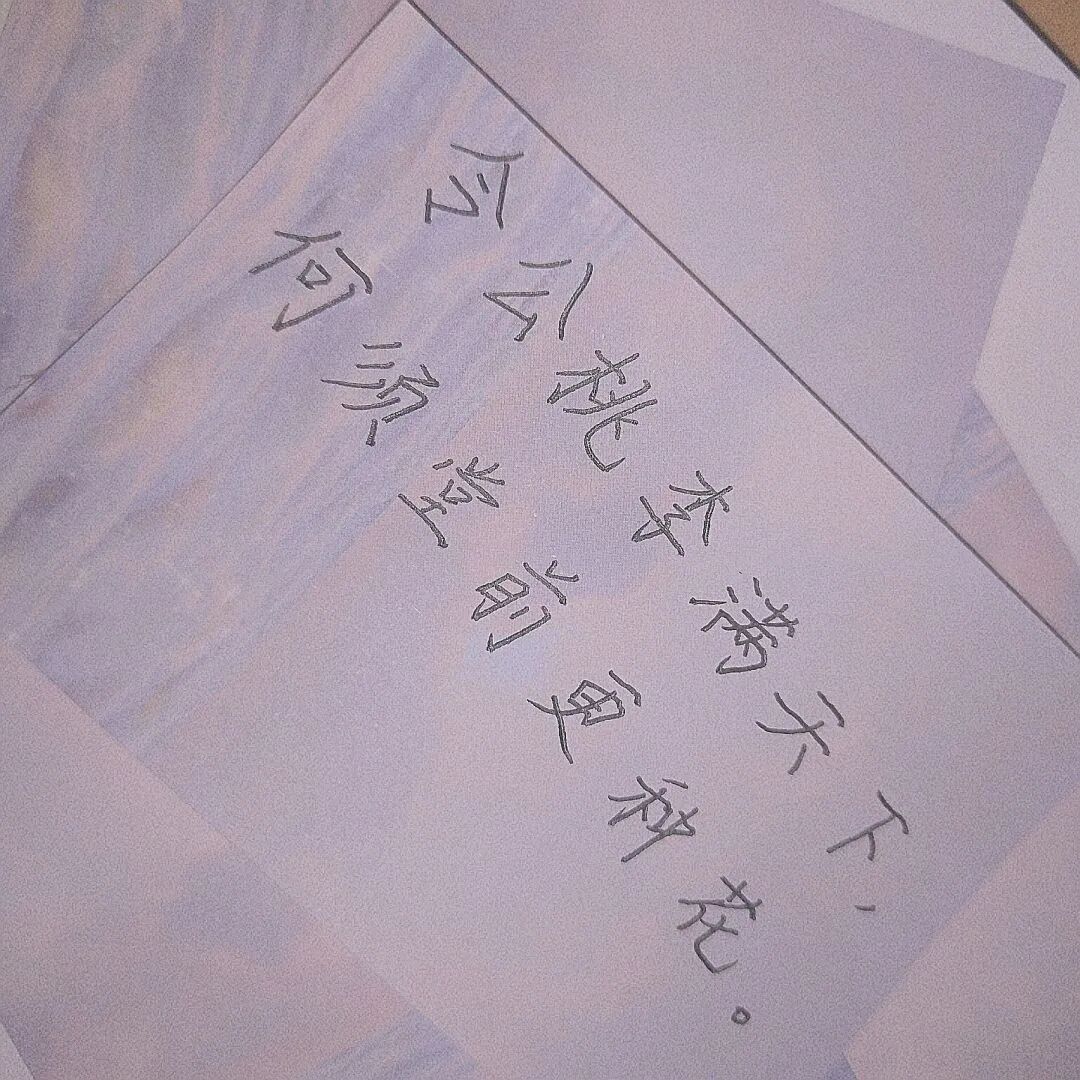 令公桃李满天下，
何须堂前更种花。